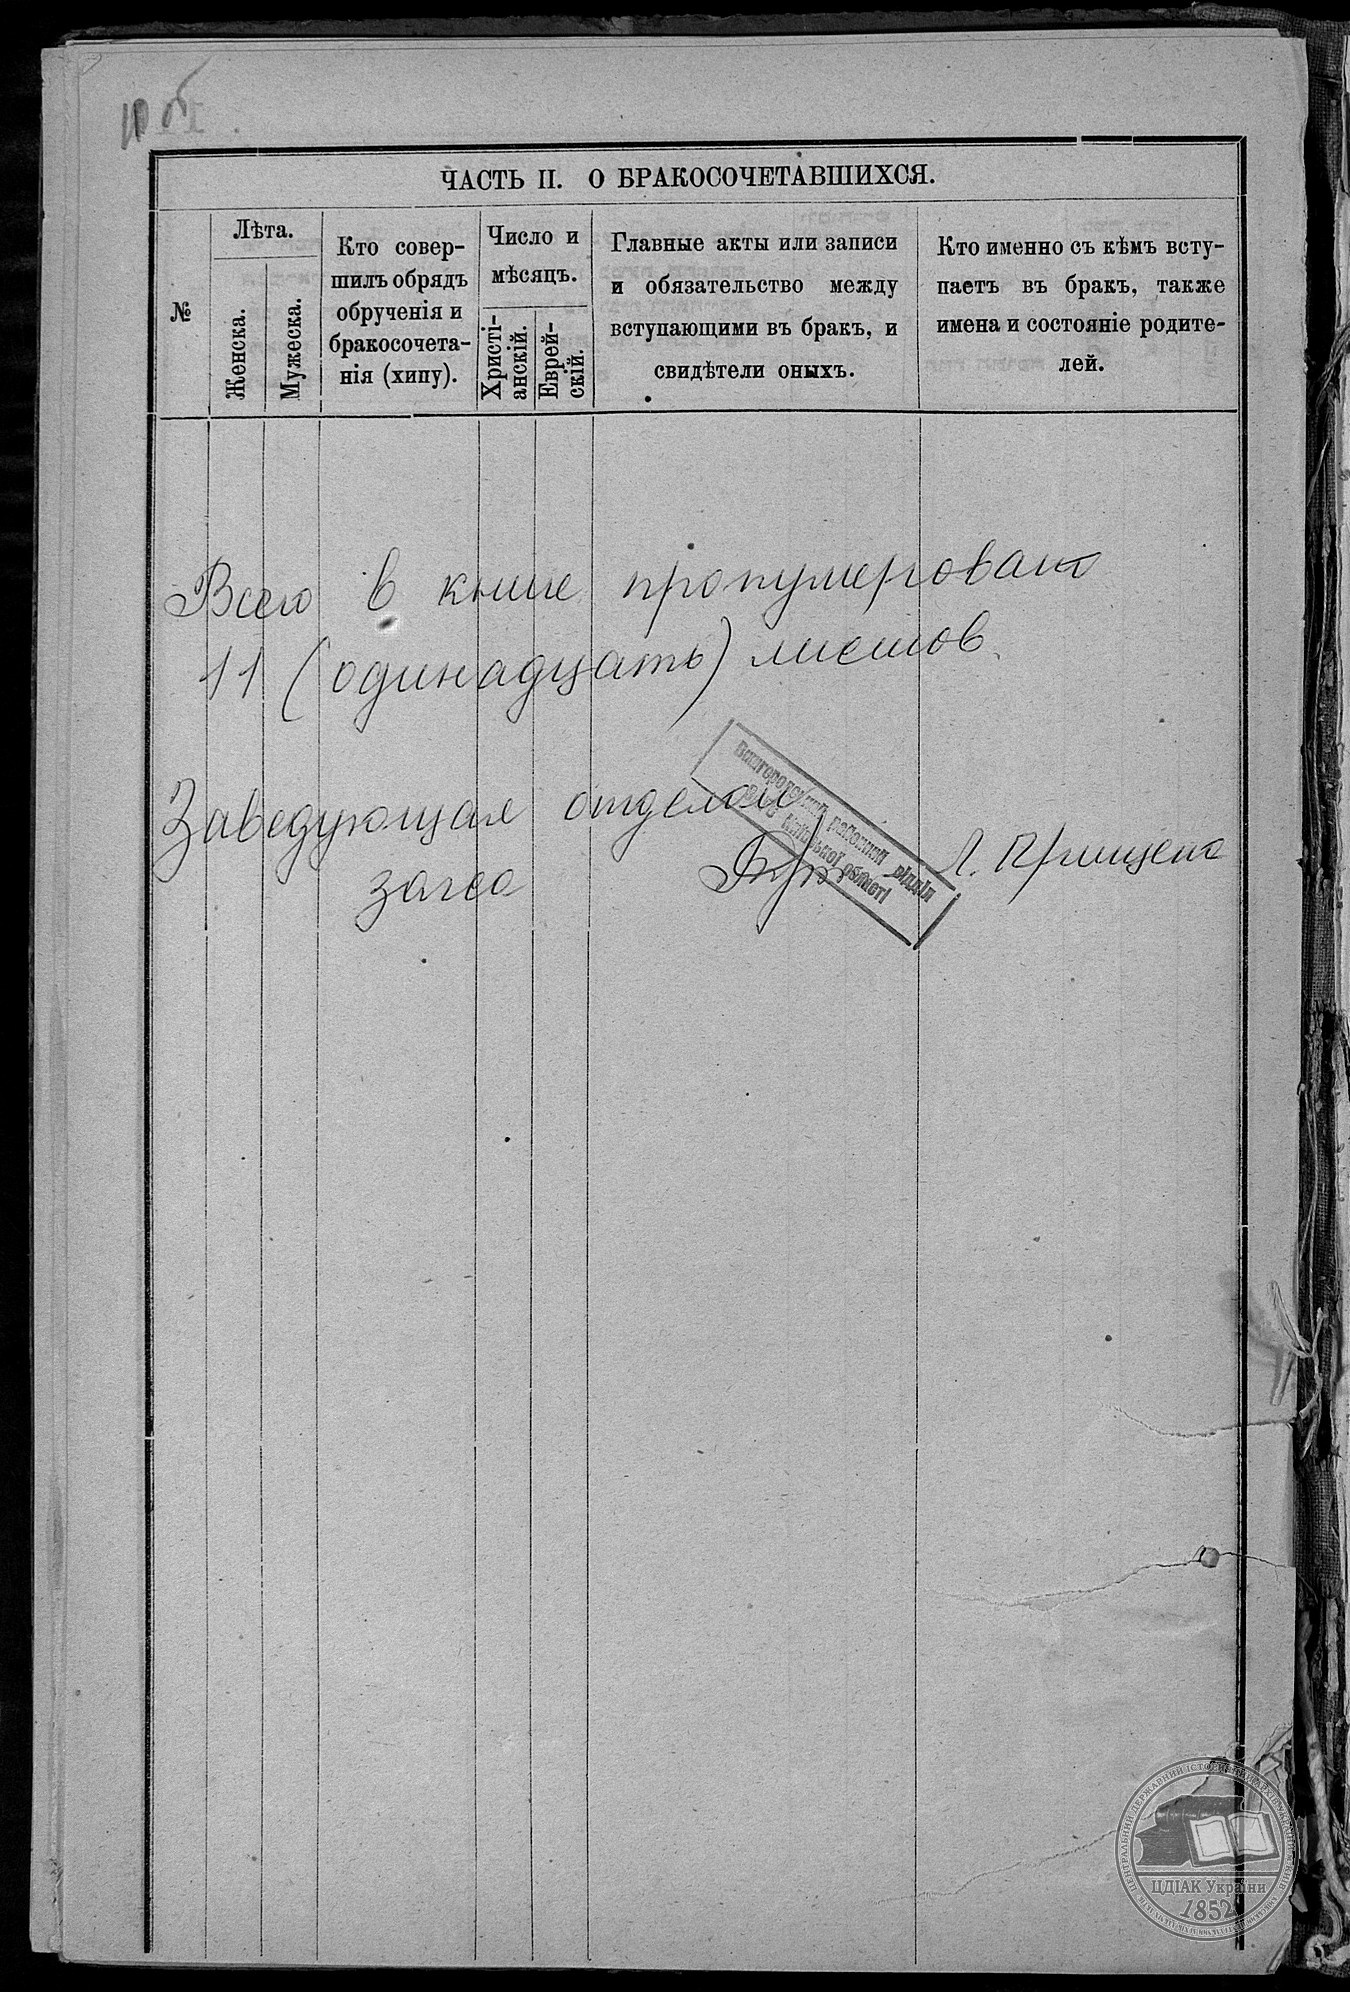 11 об
ЧАСТЬ II. О БРАКОСОЧЕТАВШИХСЯ.
№
Лѣта.
Женска.
Мужеска.
Кто совер-
шилъ обрядъ
обрученія и
бракосочета-
нія (хипу).
Число и
мѣсяцъ.
Христі-
анскій.
Еврей-
скій.
Главные акты или записи
и обязательство между
вступающими въ бракъ, и
свидѣтели оныхъ.
Кто именно съ кѣмъ всту-
паетъ въ бракъ, также
имена и состояніе родите-
лей.
Всего в книге пронумеровано
11 (одинадцать) листов.
Заведующая отделом
загса
Л. Прищепа
Вишгородський районний відділ
ЗАГС Київської області
ЦЕНТРАЛЬНИЙ ДЕРЖАВНИЙ ІСТОРИЧНИЙ АРХІВ УКРАЇНИ, М. КИЇВ
ЦДІАК України
1852